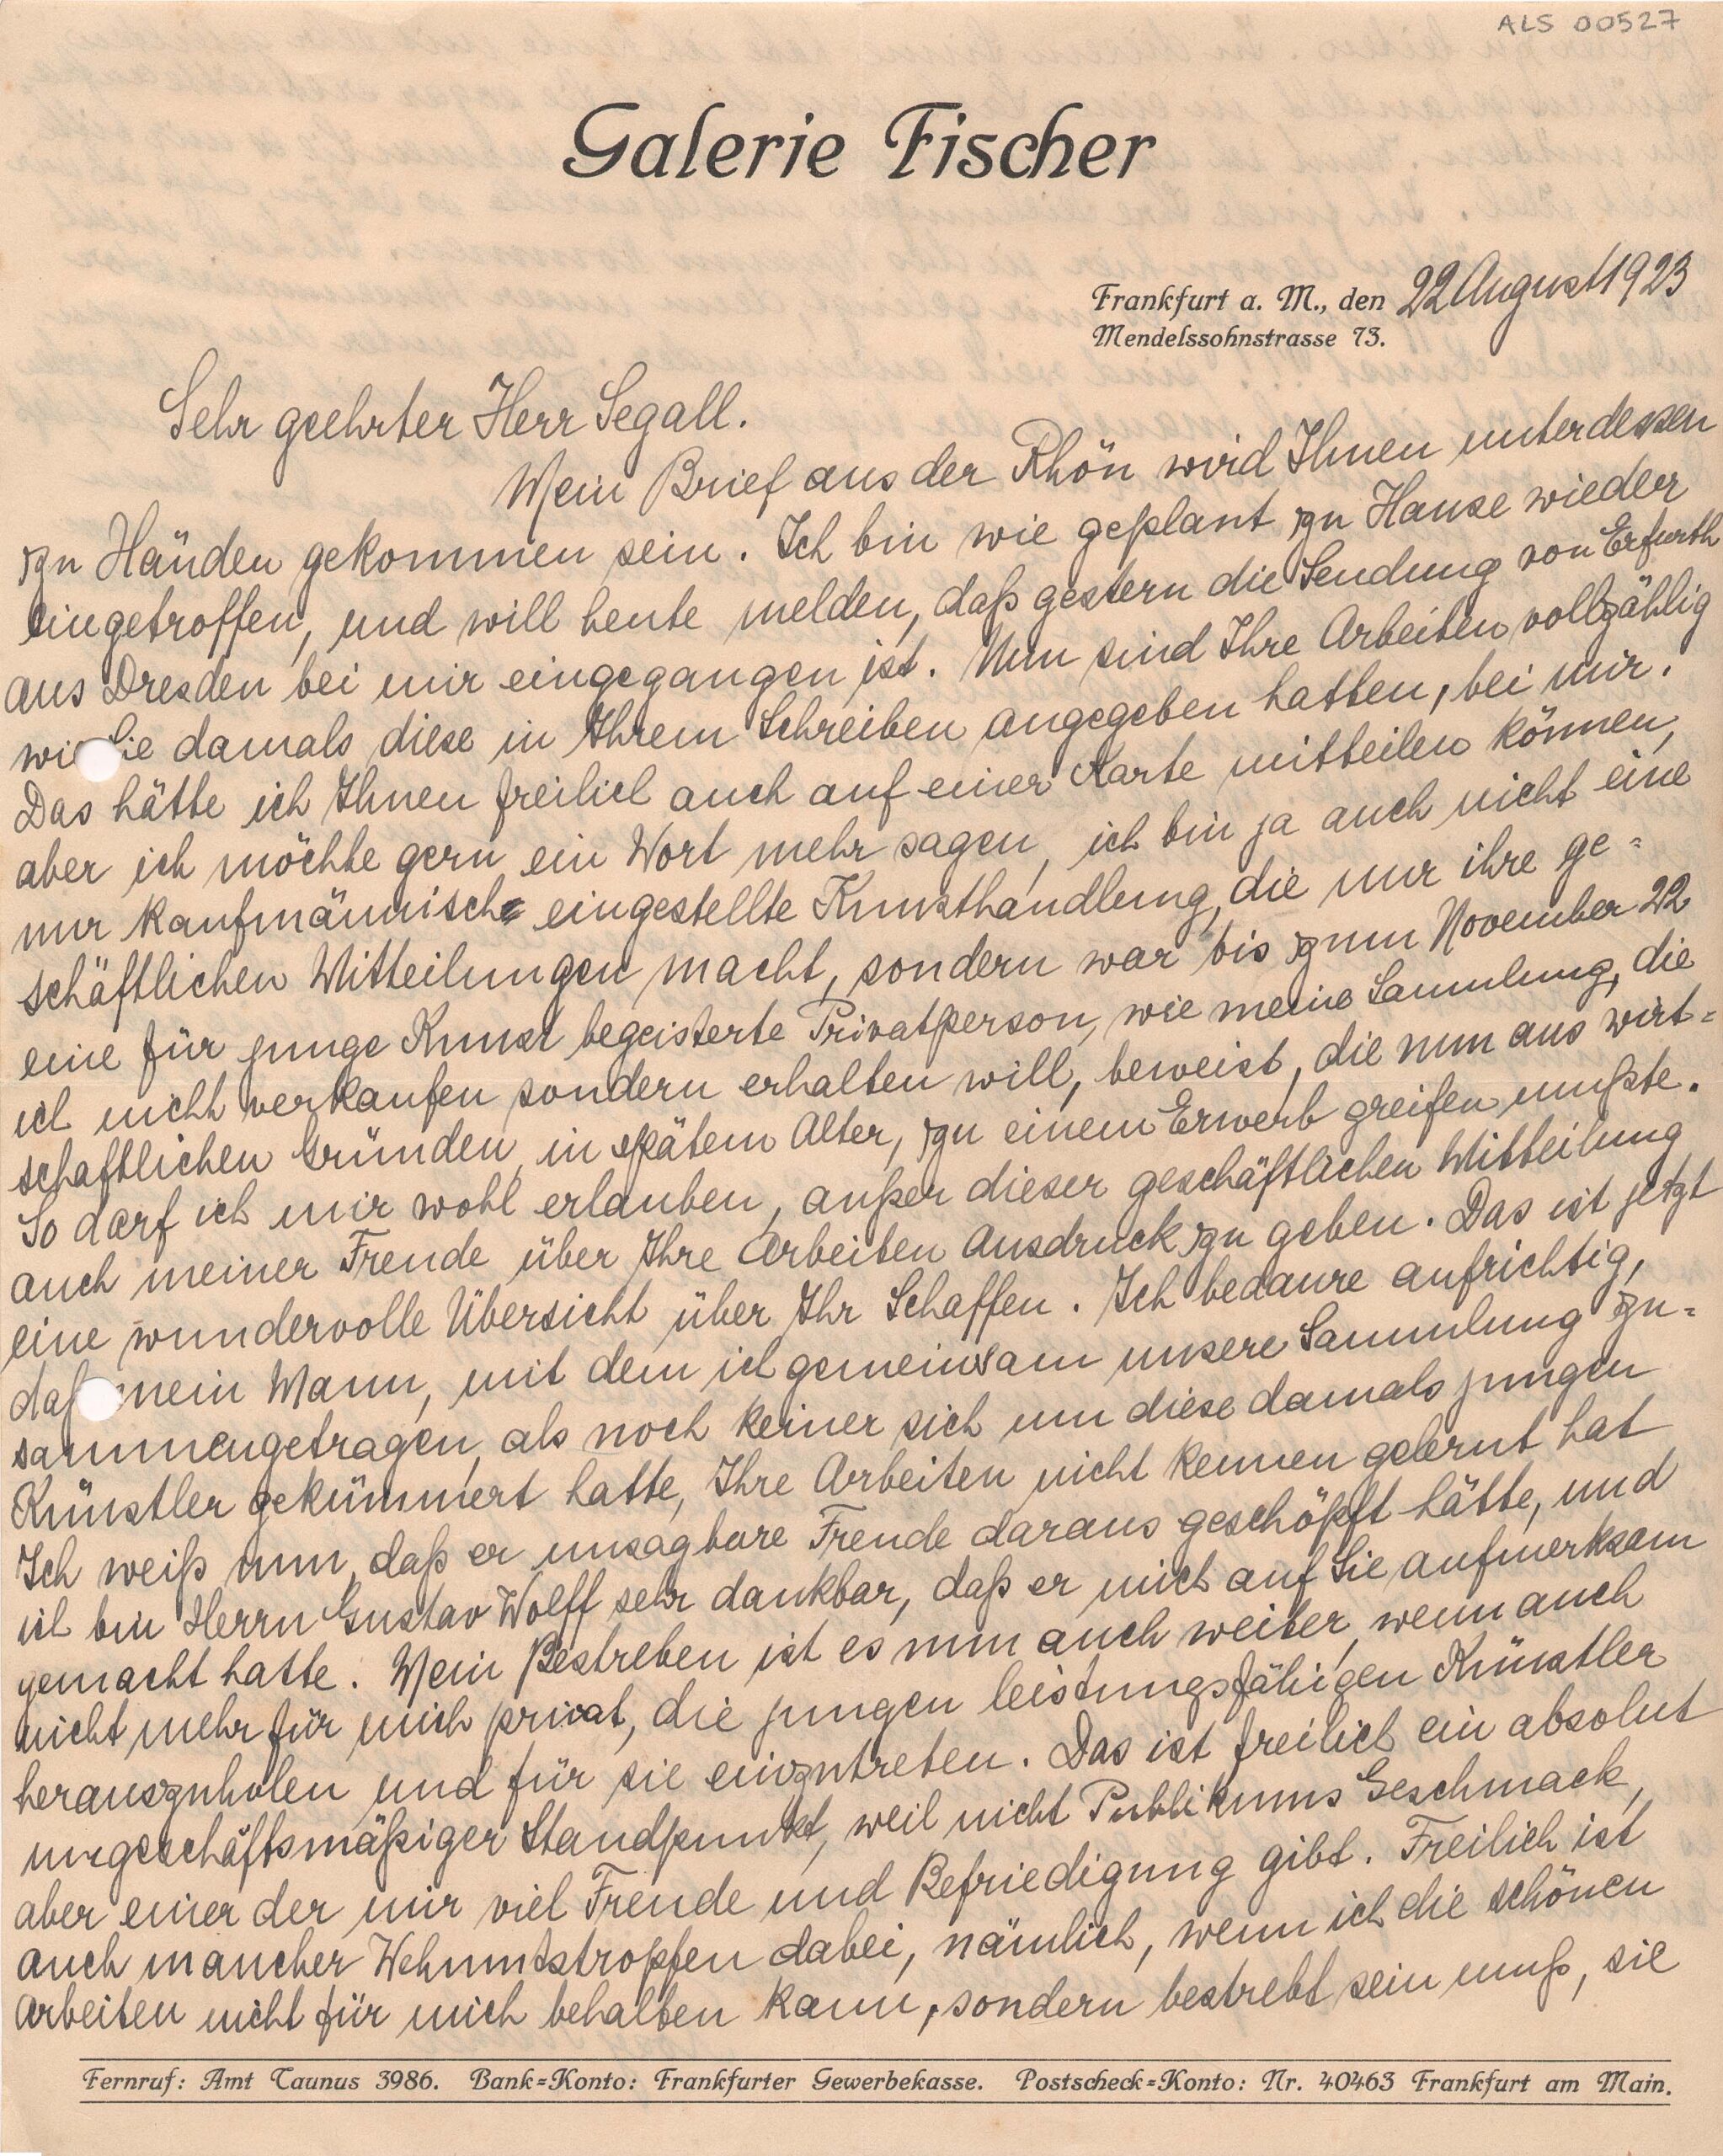 ALS 00527
Galerie Fischer
Frankfurt a. M., den 22 August 1923
Mendelssohnstrasse 73.
Sehr geehrter Herr Segall.
Mein Brief aus der Rhön wird Ihnen unterdessen
zu Händen gekommen sein. Ich bin wie geplant zu Hause wieder
eingetroffen, und will heute melden, daß gestern die Sendung von Erfurth
aus Dresden bei mir eingegangen ist. Nun sind Ihre Arbeiten vollzählig
wie Sie damals diese in Ihrem Schreiben angegeben hatten, bei mir.
Das hätte ich Ihnen freilich auch auf einer Karte mitteilen können,
aber ich möchte gern ein Wort mehr sagen, ich bin ja auch nicht eine
nur kaufmännisch eingestellte Kunsthandlung, die nur ihre ge=
schäftlichen Mitteilungen macht, sondern war bis zum November 22
eine für junge Kunst begeisterte Privatperson, wie meine Sammlung, die
ich nicht verkaufen sondern erhalten will, beweist, die nun aus wirt=
schaftlichen Gründen, in spätem Alter, zu einem Erwerb greifen mußte.
So darf ich mir wohl erlauben, außer dieser geschäftlichen Mitteilung
auch meiner Freude über Ihre Arbeiten Ausdruck zu geben. Das ist jetzt
eine wundervolle Übersicht über Ihr Schaffen. Ich bedaure aufrichtig,
daß mein Mann, mit dem ich gemeinsam unsere Sammlung zu=
sammengetragen, als noch keiner sich um diese damals jungen
Künstler gekümmert hatte, Ihre Arbeiten nicht kennen gelernt hat
Ich weiß nun, daß er unsagbare Freude daraus geschöpft hätte, und
ich bin Herrn Gustav Wolff sehr dankbar, daß er mich auf Sie aufmerksam
gemacht hatte. Mein Bestreben ist es nun auch weiter, wenn auch
nicht mehr für mich privat, die jungen leistungsfähigen Künstler
herauszuholen und für sie einzutreten. Das ist freilich ein absolut
ungeschäftsmäßiger Standpunkt, weil nicht Publikums Geschmack,
aber einer der mir viel Freude und Befriedigung gibt. Freilich ist
auch mancher Wehmutstropfen dabei, nämlich, wenn ich die schönen
Arbeiten nicht für mich behalten kann, sondern bestrebt sein muß, sie
Fernruf: Amt Taunus 3986. Bank=Konto: Frankfurter Gewerbekasse. Postscheck=Konto: Nr. 40463 Frankfurt am Main.